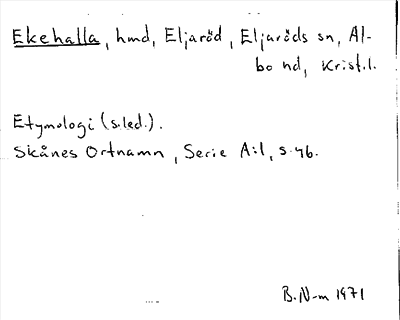 Ekehalla, hmd, Eljaröd, Eljaröds sn, Al-
bo hd, Krist.l.
Etymologi (s.led.).
Skånes Ortnamn, Serie A:1, s. 46.
B. N-m 1971